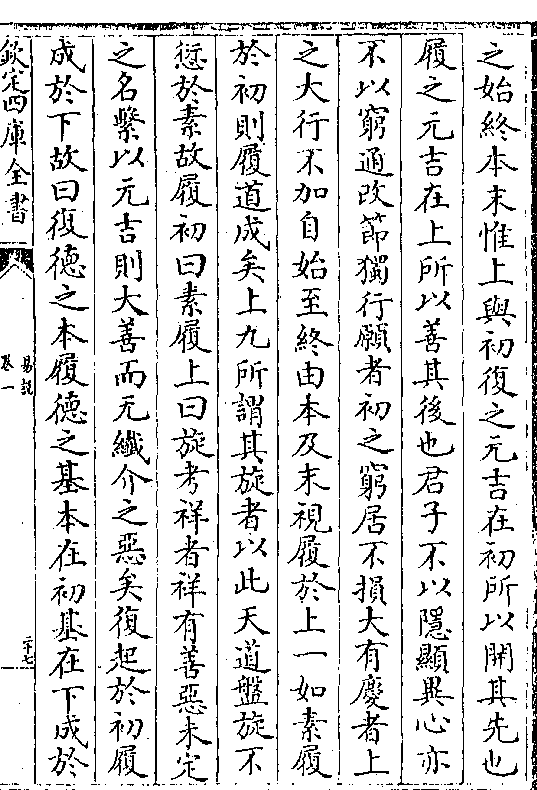 之始終本末惟上與初復之元吉在初所以開其先也
履之元吉在上所以善其後也君子不以隱顯異心亦
不以窮通改節獨行願者初之窮居不損大有慶者上
之大行不加自始至終由本及末視履於上一如素履
於初則履道成矣上九所謂其旋者以此天道盤旋不
愆於素故履初曰素履上曰旋考祥者祥有善惡未定
之名繫以元吉則大善而无纖介之惡矣復起於初履
成於下故曰復德之本履德之基本在初基在下成於
欽定四庫全書
易說
卷一
二十七